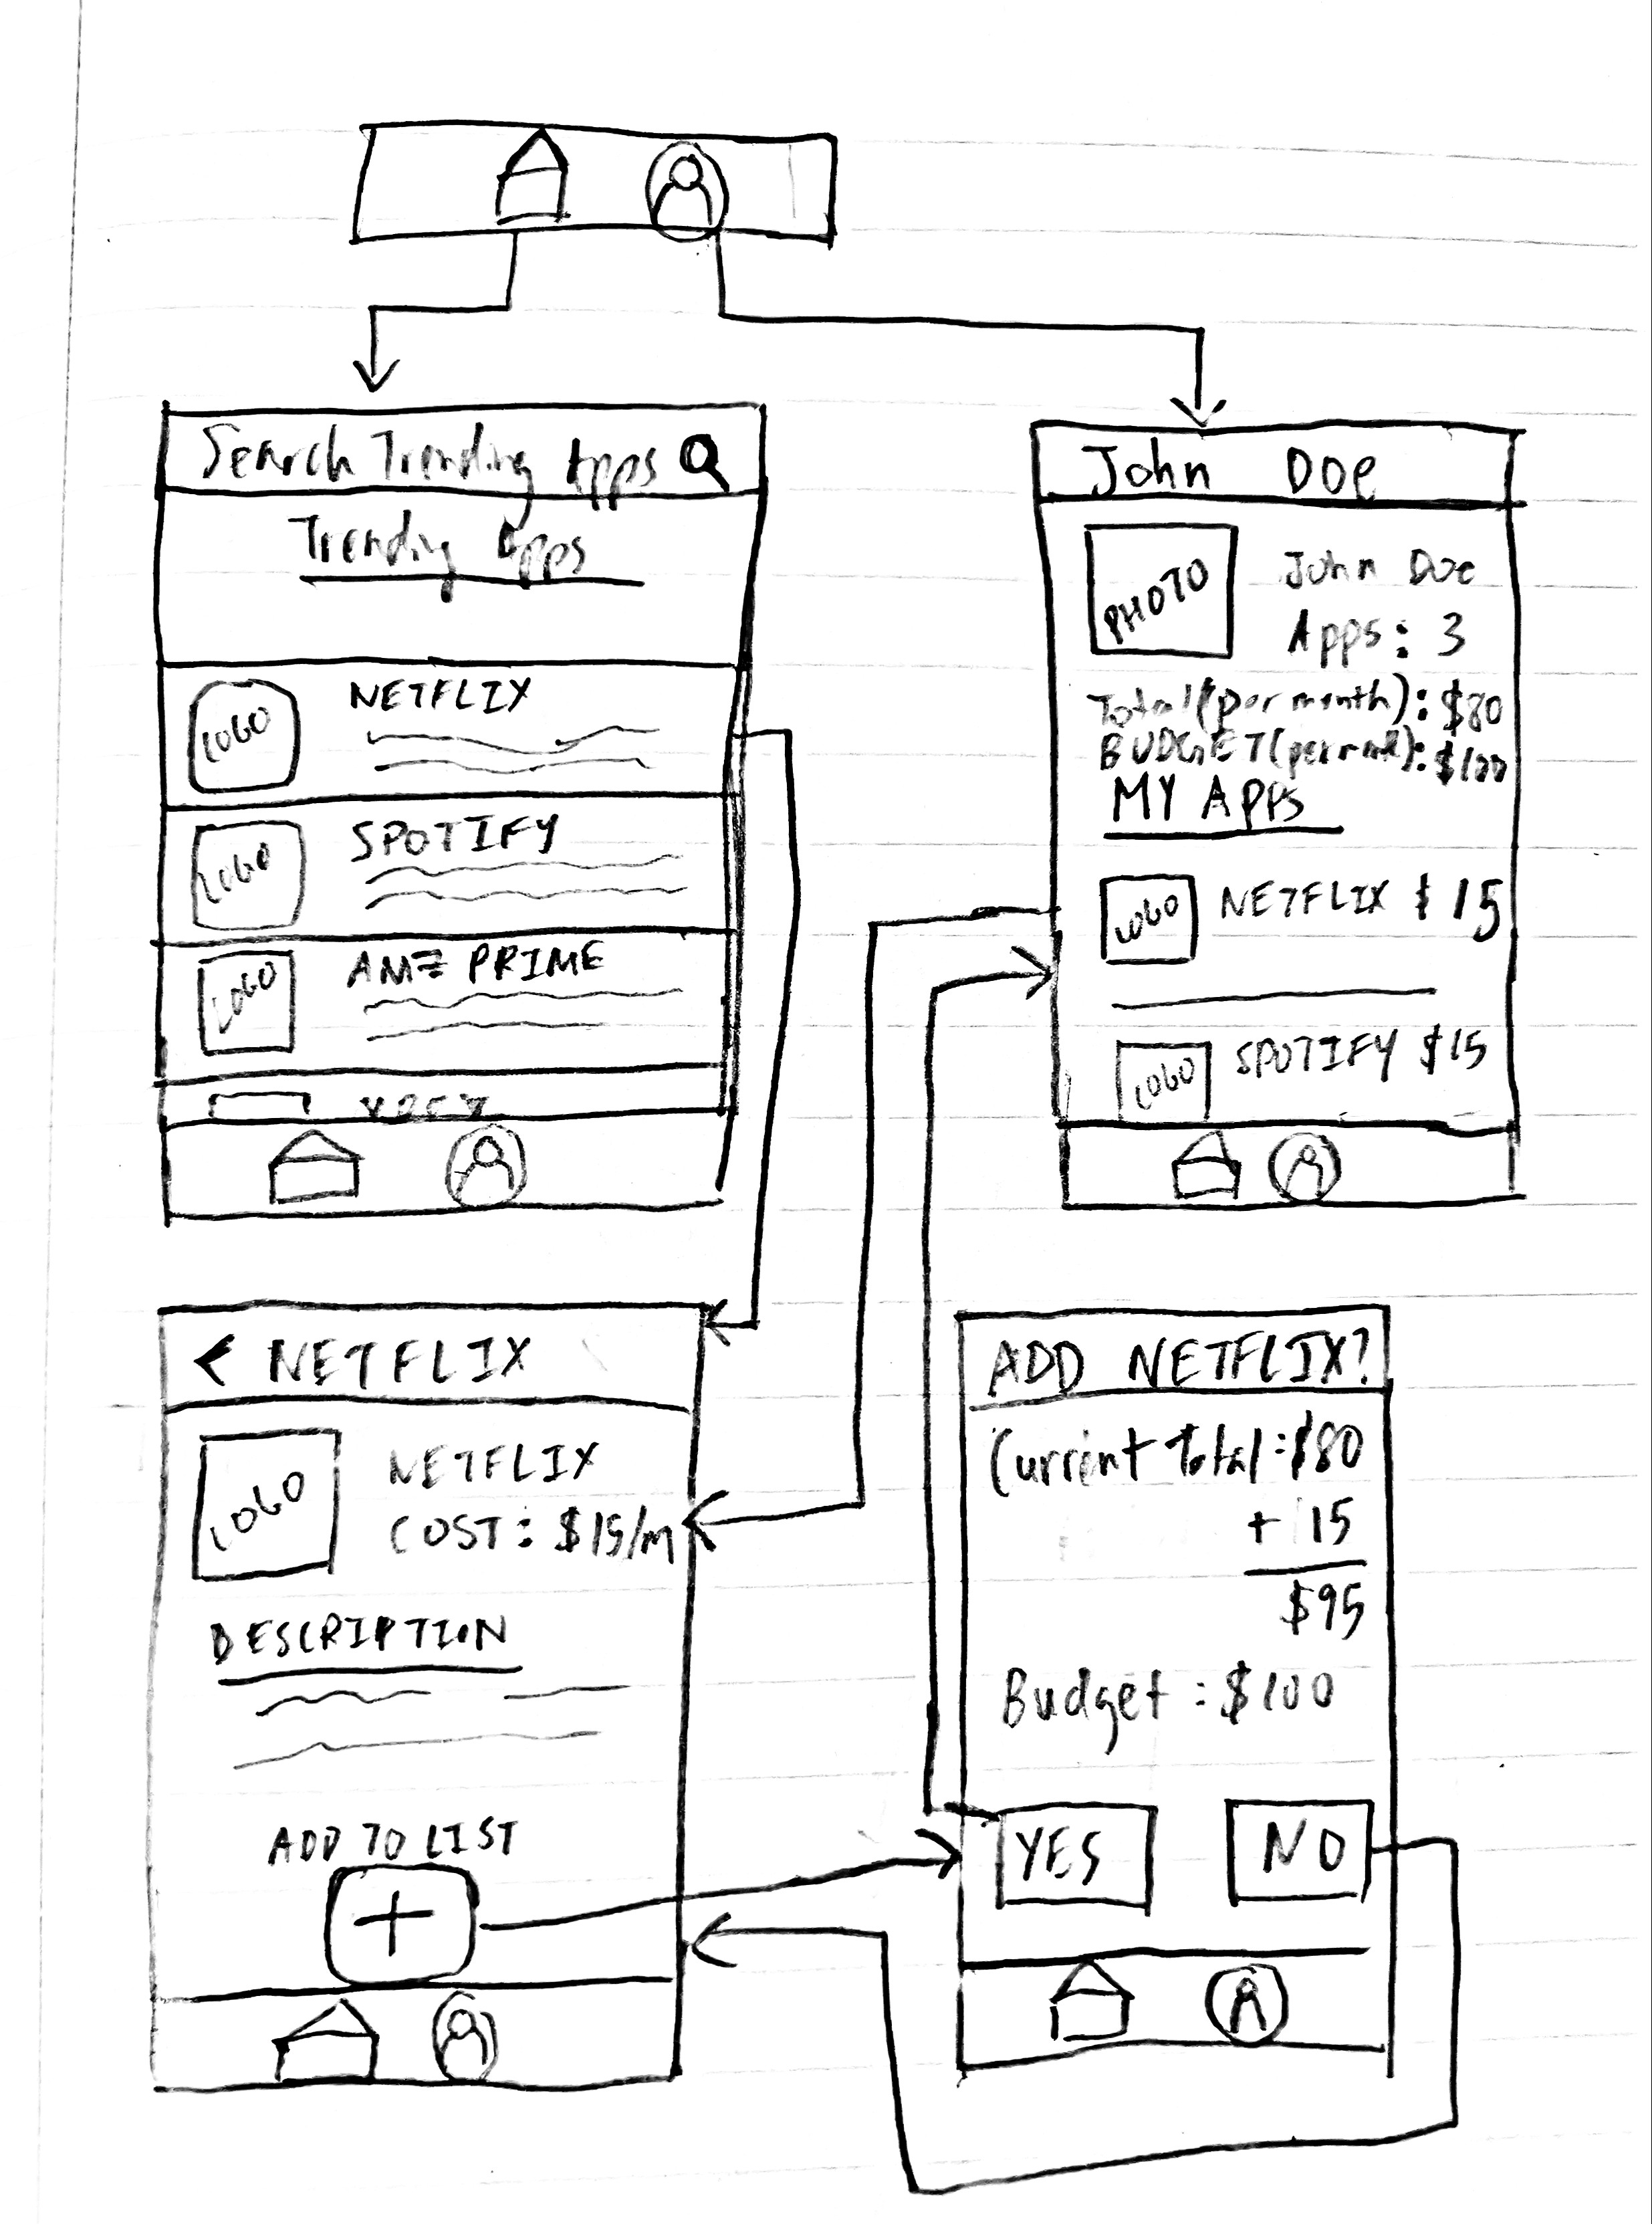 Search Trending Apps
Trending Apps
LOGO
NETFLIX
LOGO
SPOTIFY
LOGO
AMZ PRIME
John Doe
PHOTO
John Doe
Apps: 3
Total (per month): $80
BUDGET (per month): $100
MY Apps
LOGO
NETFLIX $15
LOGO
SPOTIFY $15
< NETFLIX
LOGO
NETFLIX
COST: $15/m
DESCRIPTION
ADD TO LIST
+
ADD NETFLIX?
Current Total: $80
+ 15
$95
Budget: $100
YES
NO